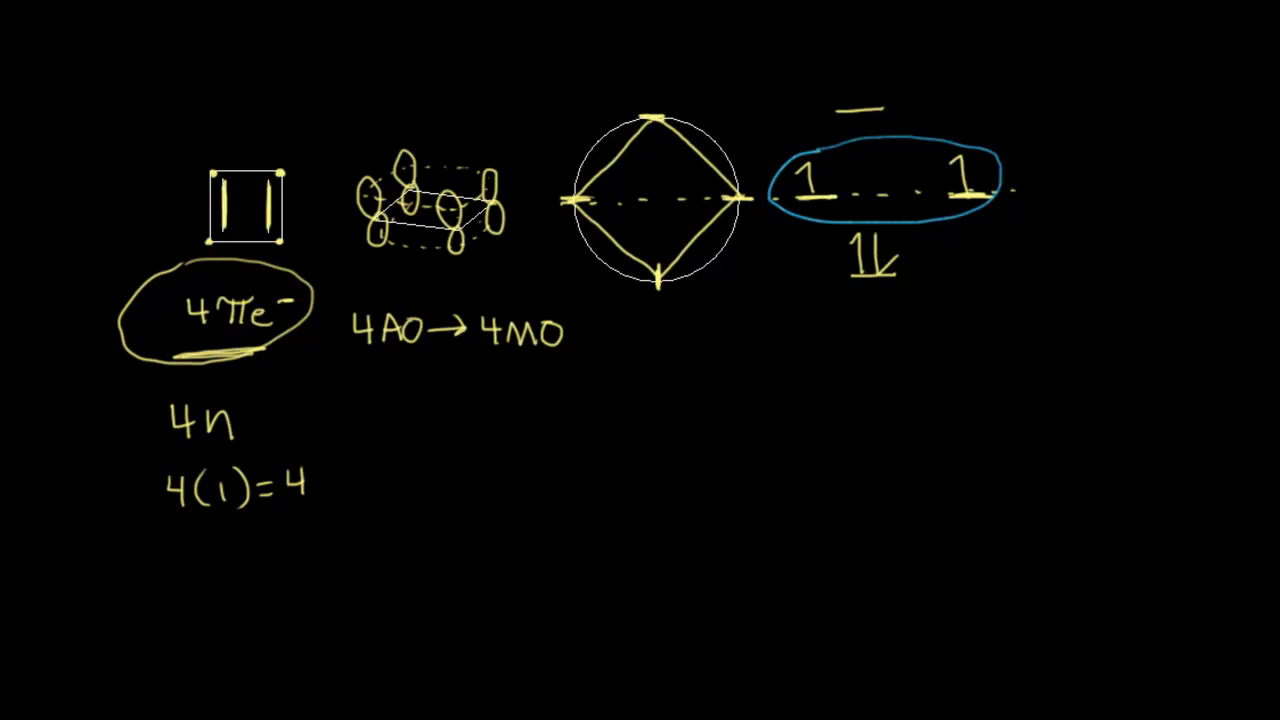 4πe⁻
4AO → 4MO
4n
4(1)=4